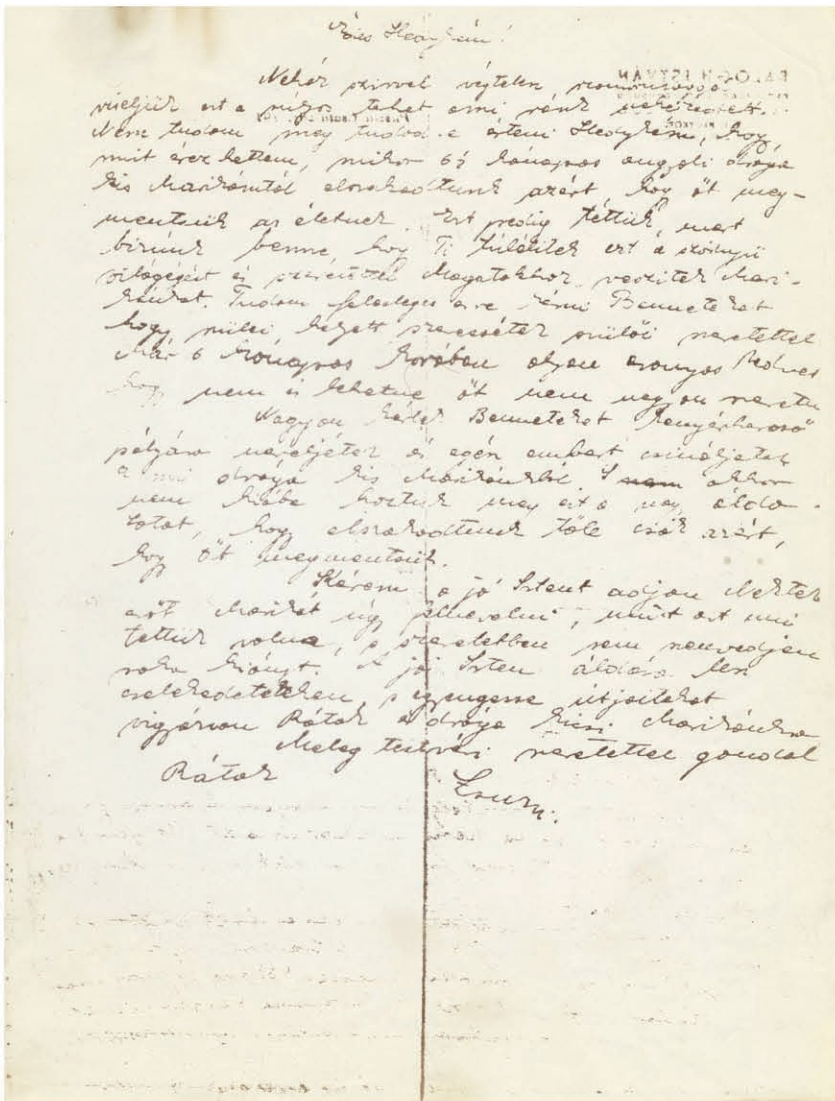 Édes Hedykém!
Nehéz szivvel végtelen szomorúsággal
viseljük ezt a súlyos terhet ami ránk nehezedett.
Nem tudom meg tudod-e érteni Hedykém, hogy
mit érezhettem, mikor 6½ hónapos angyali drága
kis Marikámtól elszakadtunk azért hogy őt meg-
mentsük az életnek. Ezt pedig tettük, mert
bizunk benne, hogy Ti túlélitek ezt a szörnyű
világégést és szeretettel Magatokhoz veszitek Mari-
kánkat. Tudom felesleges erre kérni Benneteket
hogy szülei helyett szeressétek szülői szeretettel
Már 6 hónapos korában olyan aranyos kedves
hogy nem is lehetne őt nem nagyon szeretni
Nagyon kérlek Benneteket kenyérkereső
pályára neveljétek és egész embert csináljatok
a mi drága kis Marikánkból. S akkor
nem hiába hoztuk meg ezt a nagy áldo-
zatot, hogy elszakadtunk tőle csak azért,
hogy őt megmentsük.
Kérem a jó Istent adjon Nektek
erőt Marikát úgy felnevelni, mint azt mi
tettük volna, s szeretetben sem szenvedjen
soha hiányt. A jó Isten áldása
cselekedeteteken, s egyengesse útjaitokat
vigyázzon Rátok s drága kicsi Marikánkra
Meleg testvéri szeretettel gondol
Rátok
Zsuzsi.
BALOGH ISTVÁN